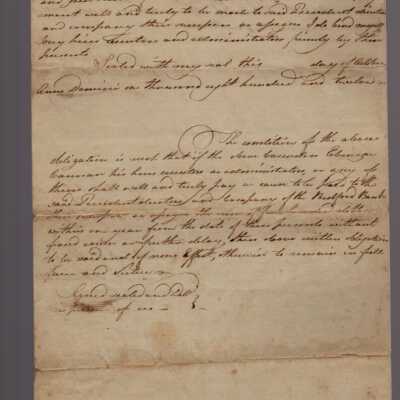 ment well and truly to be made to said President directors
and company their successors or assigns I do bind myself
my heirs executors and administrators firmly by these
presents
Sealed with my seal this day of October
Anno Domini on thousand eight hundred and twelve
The condition of the above
obligation is such that if the Ebenezer
his heirs executors or administrators, or any of
them shall well and truly pay or cause to be paid to the
said President directors and company of the Bedford Bank
their successors or assigns the sum of hundred dollars
within on year from the date of these presents without
fraud or further delay, then above written obligation
to be void and of none effect, otherwise to remain in full
force and virtue
Signed sealed and
in presence of us